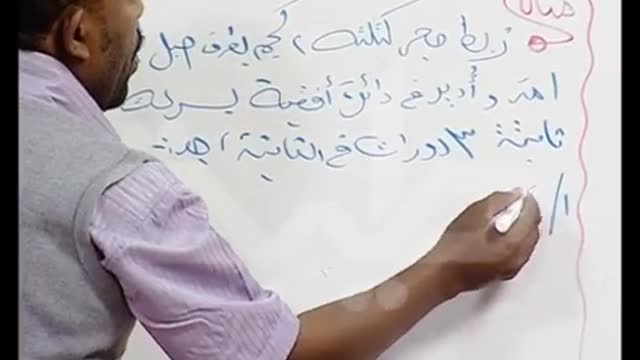 مثال
ربط حجر كتلته ١ كجم بطرف حبل
١متر وأدير في دائرة أفقية بسرعة
ثابتة ٣ دورات في الثانية احدث
١/